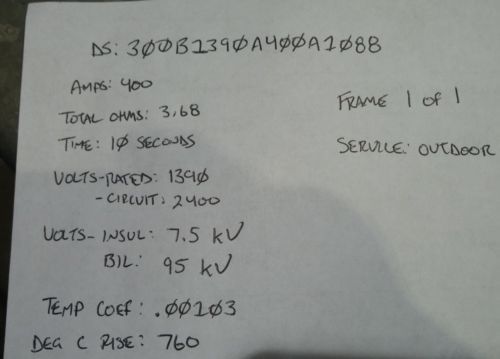 DS: 3ØØB139ØA4ØØA1Ø88
AMPS: 400
TOTAL OHMS: 3.68
TIME: 1Ø SECONDS
VOLTS-RATED: 139Ø
-CIRCUIT: 2400
VOLTS-INSUL: 7.5 kV
BIL: 95 kV
TEMP COEF: .ØØ1Ø3
DEG C RISE: 760
FRAME 1 of 1
SERVICE: OUTDOOR